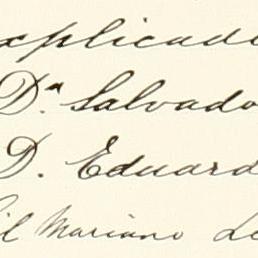 explicado
Dª Salvado
D. Eduard
il Mariano Le